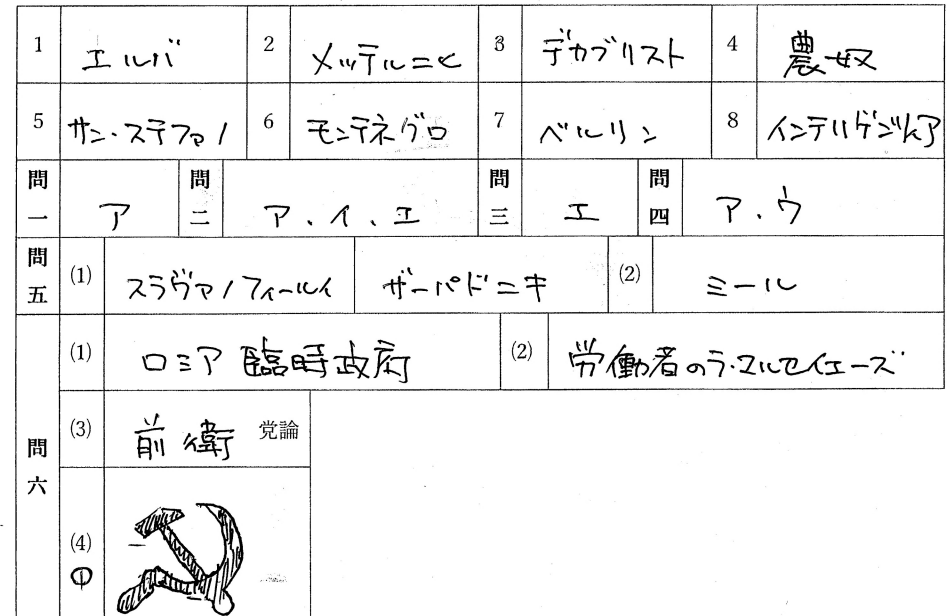 1 エルバ 2 メッテルニヒ 3 デカブリスト 4 農奴
5 サン・ステファノ 6 モンテネグロ 7 ベルリン 8 インテリゲンツィア
問一 ア 問二 ア、イ、エ 問三 エ 問四 ア、ウ
問五 (1) スラヴァノフィールイ ザーパドニキ (2) ミール
問六 (1) ロシア臨時政府 (2) 労働者のラ・マルセイエーズ
(3) 前衛 党論
(4)